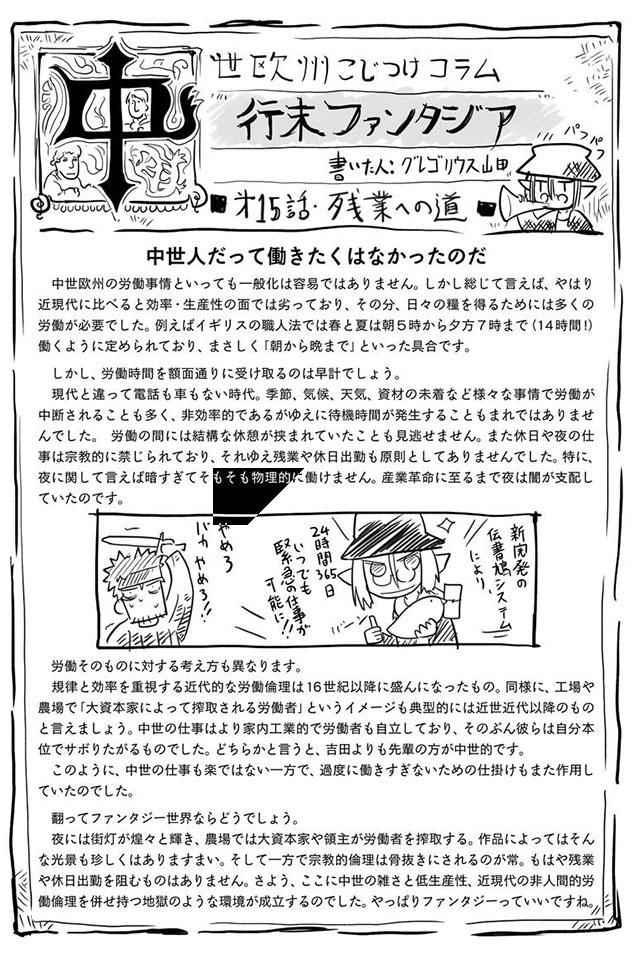 中世欧州こじつけコラム
行末ファンタジア
書いた人：グレゴリウス山田
パフパフ
第15話・残業への道
中世人だって働きたくはなかったのだ
中世欧州の労働事情といっても一般化は容易ではありません。しかし総じて言えば、やはり
近現代に比べると効率・生産性の面では劣っており、その分、日々の糧を得るためには多くの
労働が必要でした。例えばイギリスの職人法では春と夏は朝５時から夕方７時まで（14時間!）
働くように定められており、まさしく「朝から晩まで」といった具合です。
しかし、労働時間を額面通りに受け取るのは早計でしょう。
現代と違って電話も車もない時代。季節、気候、天気、資材の未着など様々な事情で労働が
中断されることも多く、非効率的であるがゆえに待機時間が発生することもまれではありませ
んでした。 労働の間には結構な休憩が挟まれていたことも見逃せません。また休日や夜の仕
事は宗教的に禁じられており、それゆえ残業や休日出勤も原則としてありませんでした。特に、
夜に関して言えば暗すぎてそもそも物理的に働けません。産業革命に至るまで夜は闇が支配し
ていたのです。
新開発の
伝書鳩システム
により、
24時間365日
いつでも
緊急の仕事が
可能に!!
バーン
やめろ
バカやめろ!!
労働そのものに対する考え方も異なります。
規律と効率を重視する近代的な労働倫理は16世紀以降に盛んになったもの。同様に、工場や
農場で「大資本家によって搾取される労働者」というイメージも典型的には近世近代以降のもの
と言えましょう。中世の仕事はより家内工業的で労働者も自立しており、そのぶん彼らは自分本
位でサボりたがるものでした。どちらかと言うと、吉田よりも先輩の方が中世的です。
このように、中世の仕事も楽ではない一方で、過度に働きすぎないための仕掛けもまた作用し
ていたのでした。
翻ってファンタジー世界ならどうでしょう。
夜には街灯が煌々と輝き、農場では大資本家や領主が労働者を搾取する。作品によってはそん
な光景も珍しくはありますまい。そして一方で宗教的倫理は骨抜きにされるのが常。もはや残業
や休日出勤を阻むものはありません。さよう、ここに中世の雑さと低生産性、近現代の非人間的労
働倫理を併せ持つ地獄のような環境が成立するのでした。やっぱりファンタジーっていいですね。